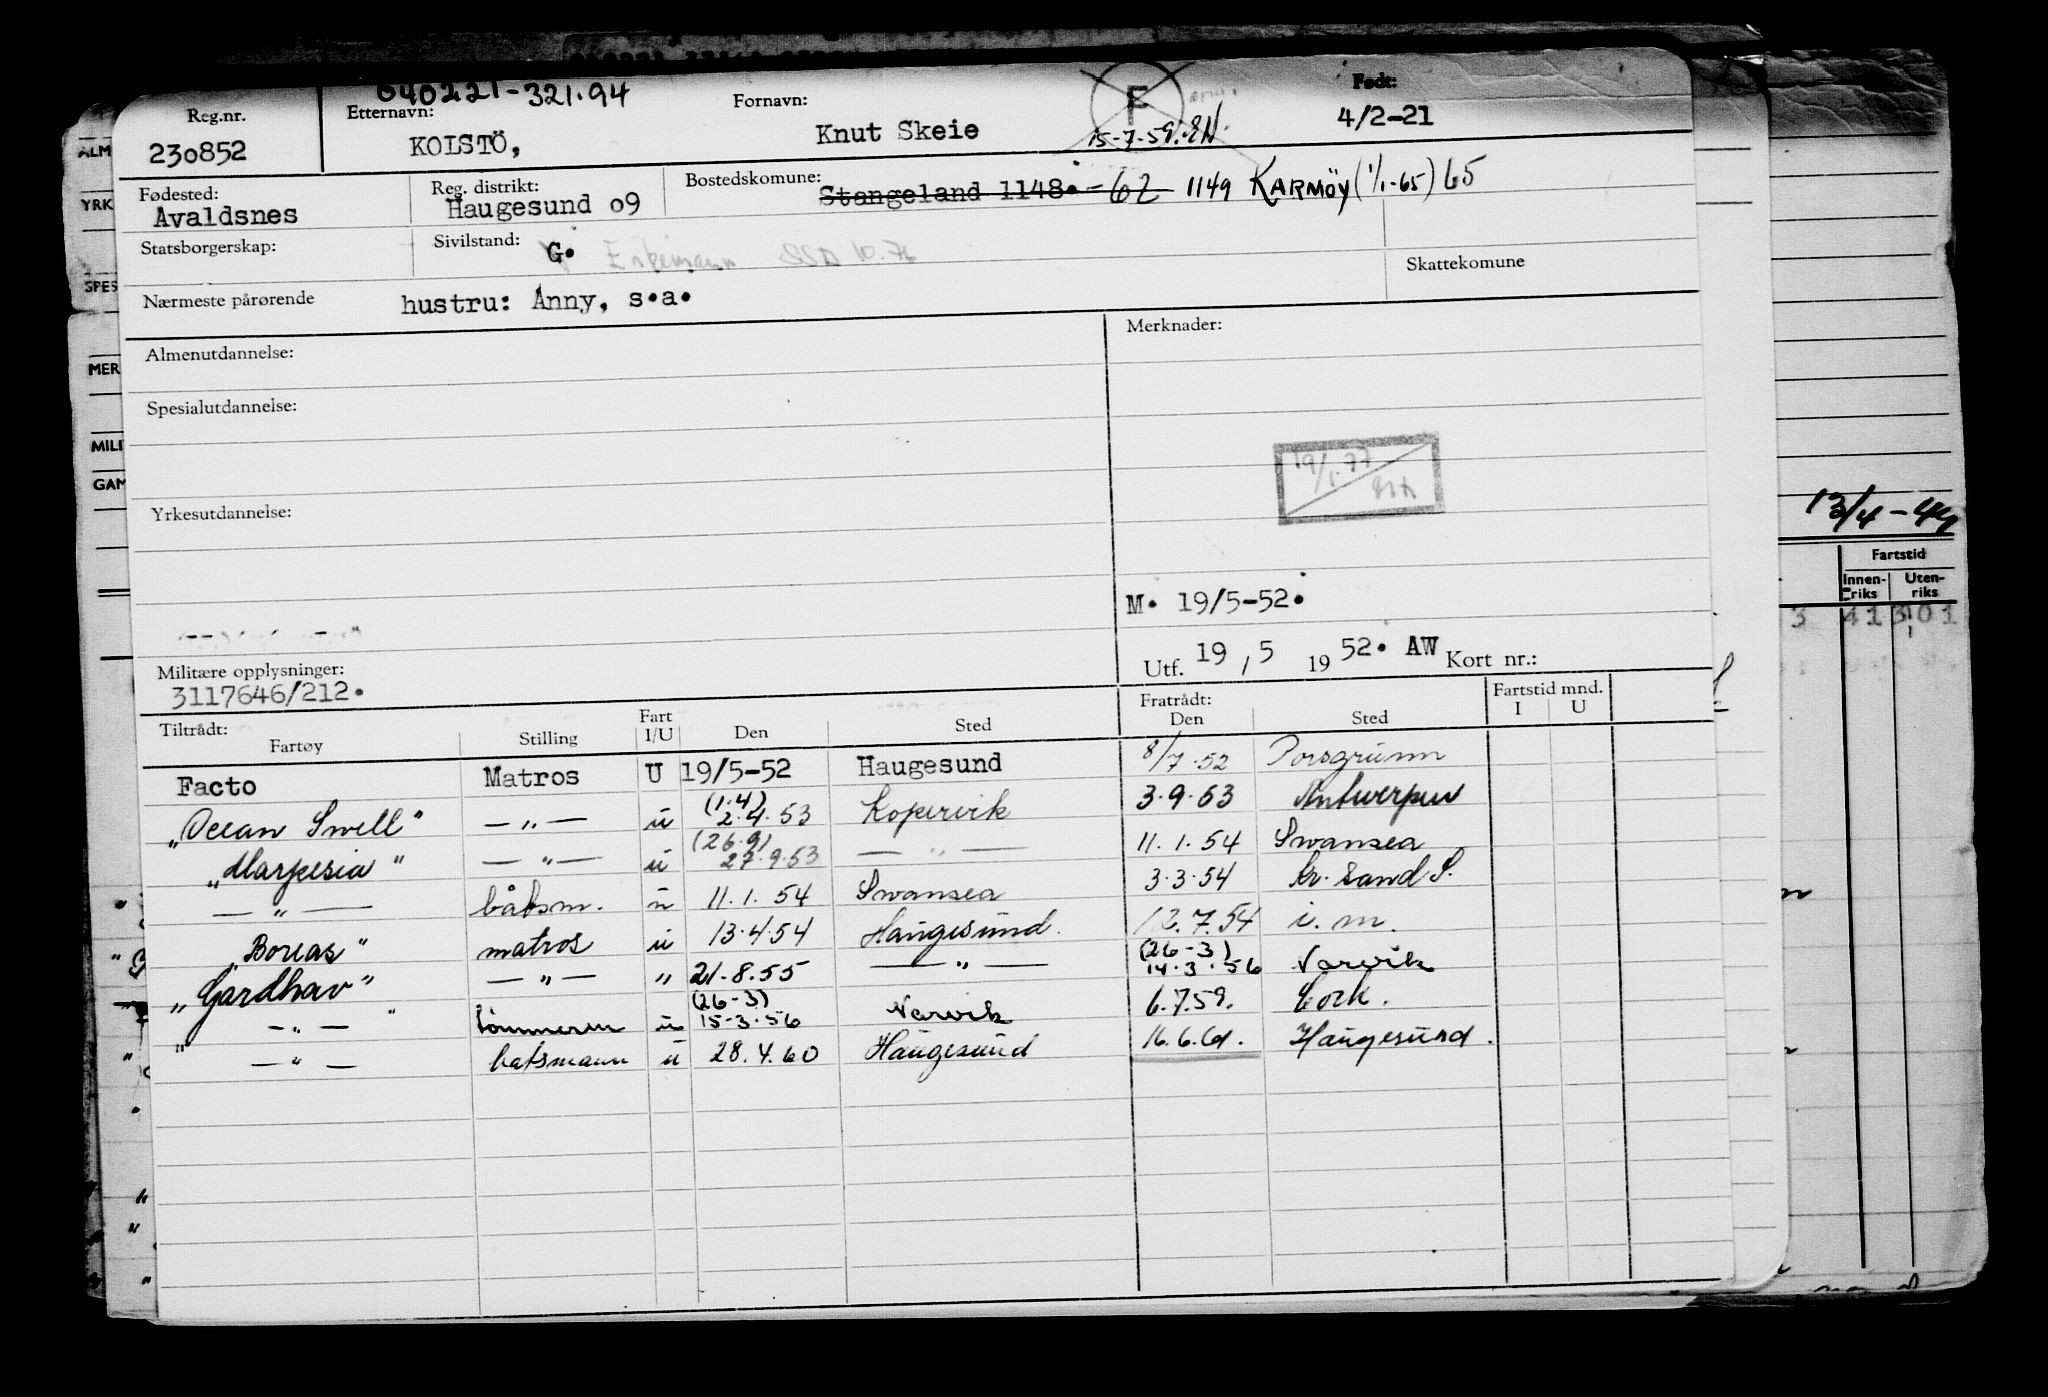 040221-321.94
Reg.nr. Etternavn: Fornavn: F Født:
230852 KOLSTÖ, Knut Skeie 15-7-59. EN. 4/2-21
Fødested: Reg. distrikt: Bostedskomune: Stangeland 1148.-62 1149 KARMÖY (1/1-65) 65
Avaldsnes Haugesund 09
Statsborgerskap: Sivilstand: G. Enkemann SSD 10.76
Skattekomune
Nærmeste pårørende hustru: Anny, s.a.
Almenutdannelse: Merknader:
Spesialutdannelse:
19/1.77
Yrkesutdannelse:
M. 19/5-52.
Utf. 19, 5 1952. AW Kort nr.:
Militære opplysninger:
3117646/212.
Tiltrådt: Fratrådt: Fartstid mnd.
Fartøy Stilling Fart I/U Den Sted Den Sted I U
Facto Matros U 19/5-52 Haugesund 8/7.52 Porsgrunn
"Ocean Swell" — " — u (1.4) 2.4.53 Kopervik 3.9.53 Antwerpen
"Marpesia" — " — u (26.9) 27.9.53 — " — 11.1.54 Swansea
— " — båtsm. u 11.1.54 Swansea 3.3.54 Kr. Sand S.
"Boreas" matros u 13.4.54 Haugesund. 12.7.54 i.m.
"Gardhav" — " — " 21.8.55 — " — (26-3) 14.3.56 Narvik
" — " — " tömmerm u (26-3) 15-3.56 Narvik 6.7.59. Cork.
— " — batsmann u 28.4.60 Haugesund 16.6.61. Haugesund.
13/4-44
Fartstid
Innenriks Utenriks
3 41 301
ALM
YRK
SPES
MER
MILI
GAM